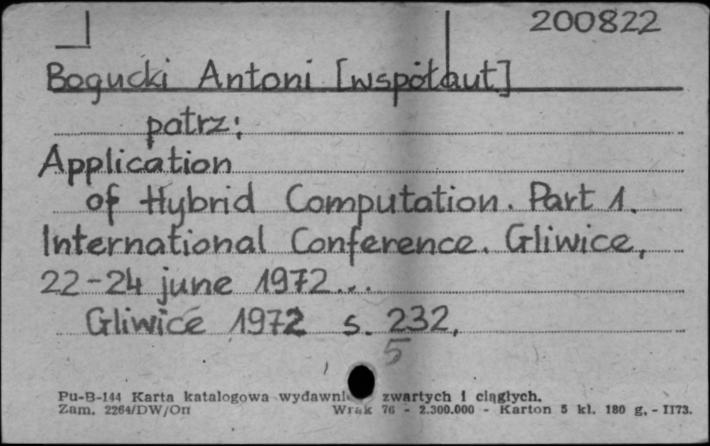 200822
Bogucki Antoni [współaut]
patrz:
Application
of Hybrid Computation. Part 1.
International Conference. Gliwice,
22-24 june 1972...
Gliwice 1972 s. 232,
5
Pu-B-144 Karta katalogowa wydawni zwartych i ciągłych.
Zam. 2264/DW/On Wrak 76 - 2.300.000 - Karton 5 kl. 180 g. - 1173.